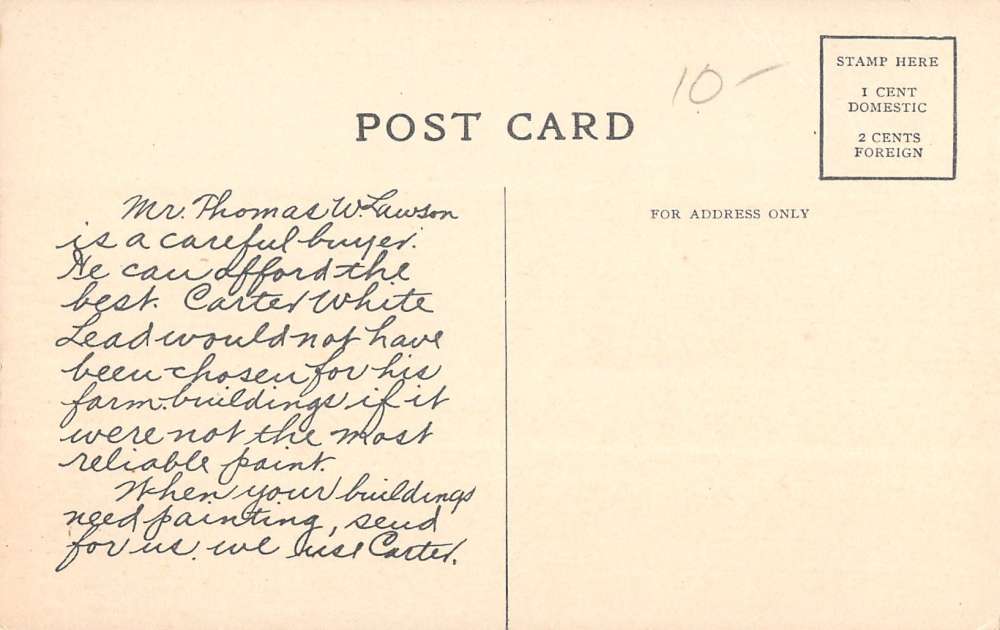 STAMP HERE
1 CENT
DOMESTIC
2 CENTS
FOREIGN
10-
POST CARD
FOR ADDRESS ONLY
Mr. Thomas W. Lawson
is a careful buyer.
He can afford the
best. Carter White
Lead would not have
been chosen for his
farm-buildings if it
were not the most
reliable paint.
When your buildings
need painting, send
for us. we use Carter.